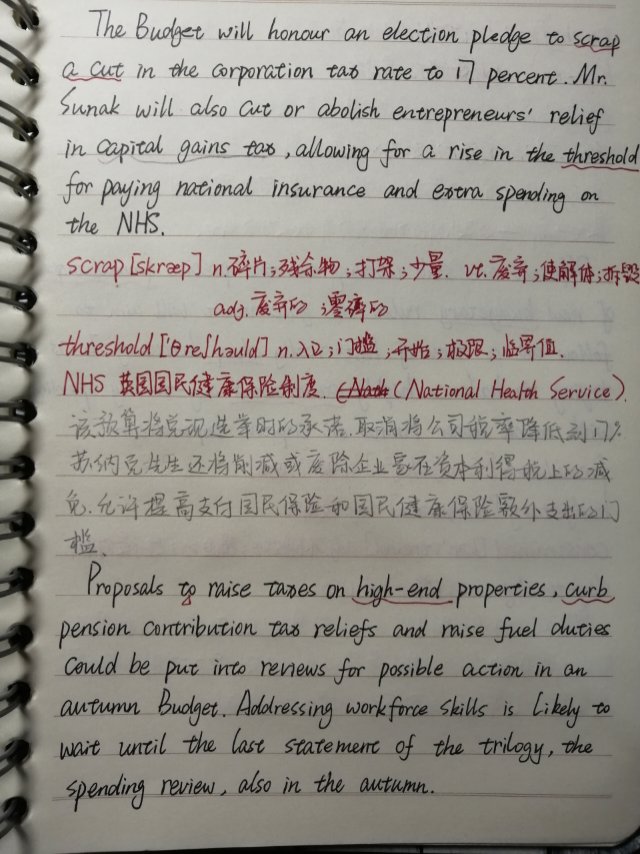 The Budget will honour an election pledge to scrap
a cut in the corporation tax rate to 17 percent. Mr.
Sunak will also cut or abolish entrepreneurs' relief
in capital gains tax, allowing for a rise in the threshold
for paying national insurance and extra spending on
the NHS.
scrap [skræp] n.碎片;残余物;打架;少量. vt.废弃;使解体;拆毁
adj.废弃的;零碎的
threshold ['θreʃhəuld] n.入口;门槛;开始;极限;临界值.
NHS 英国国民健康保险制度. (National Health Service).
该预算将兑现选举时的承诺.取消将公司税率降低到17%
苏纳克先生还将削减或废除企业家在资本利得税上的减
免.允许提高支付国民保险和国民健康保险额外支出的门
槛.
Proposals to raise taxes on high-end properties, curb
pension contribution tax reliefs and raise fuel duties
could be put into reviews for possible action in an
autumn Budget. Addressing workforce skills is likely to
wait until the last statement of the trilogy, the
spending review, also in the autumn.